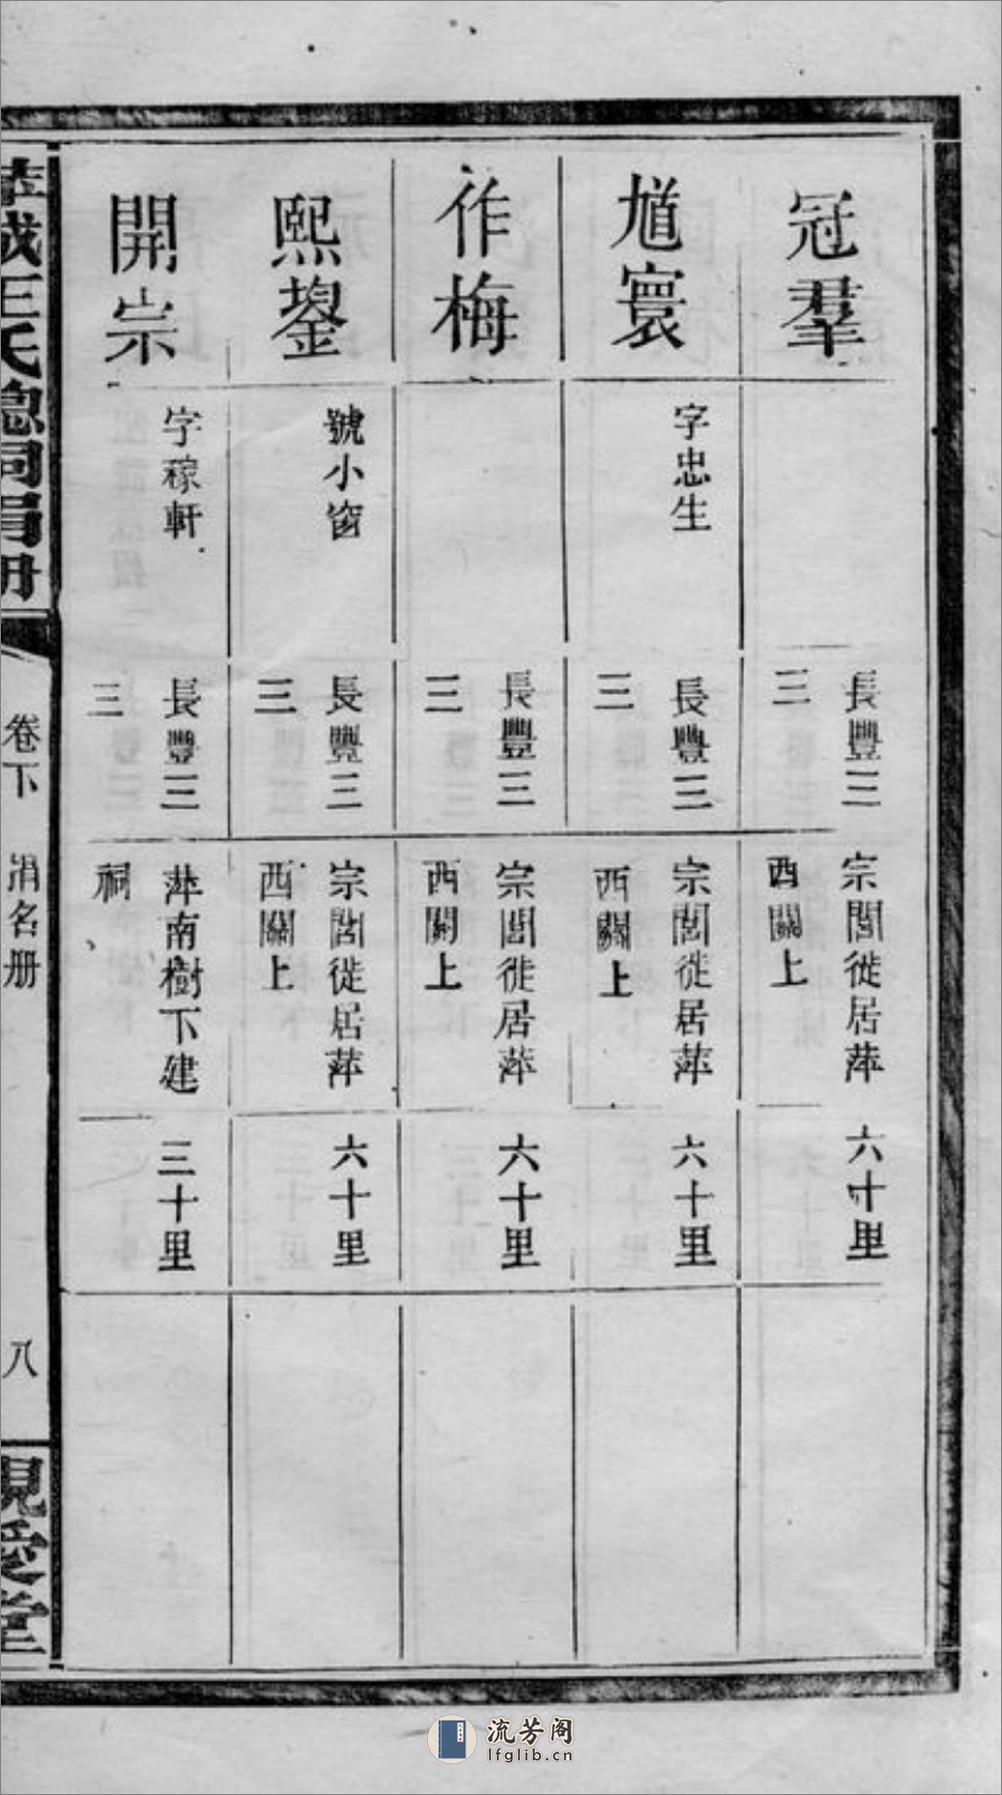 冠羣
長豐三
三
宗閭徙居萍
西關上
六十里
馗寰
字忠生
長豐三
三
宗閭徙居萍
西關上
六十里
作梅
長豐三
三
宗閭徙居萍
西關上
六十里
熙鋆
號小窗
長豐三
三
宗閭徙居萍
西關上
六十里
開崇
字稼軒
長豐三
三
萍南樹下建
祠
三十里
萍城王氏總祠捐册
卷下
捐名册
八
親愛堂
流芳阁
lfglib.cn